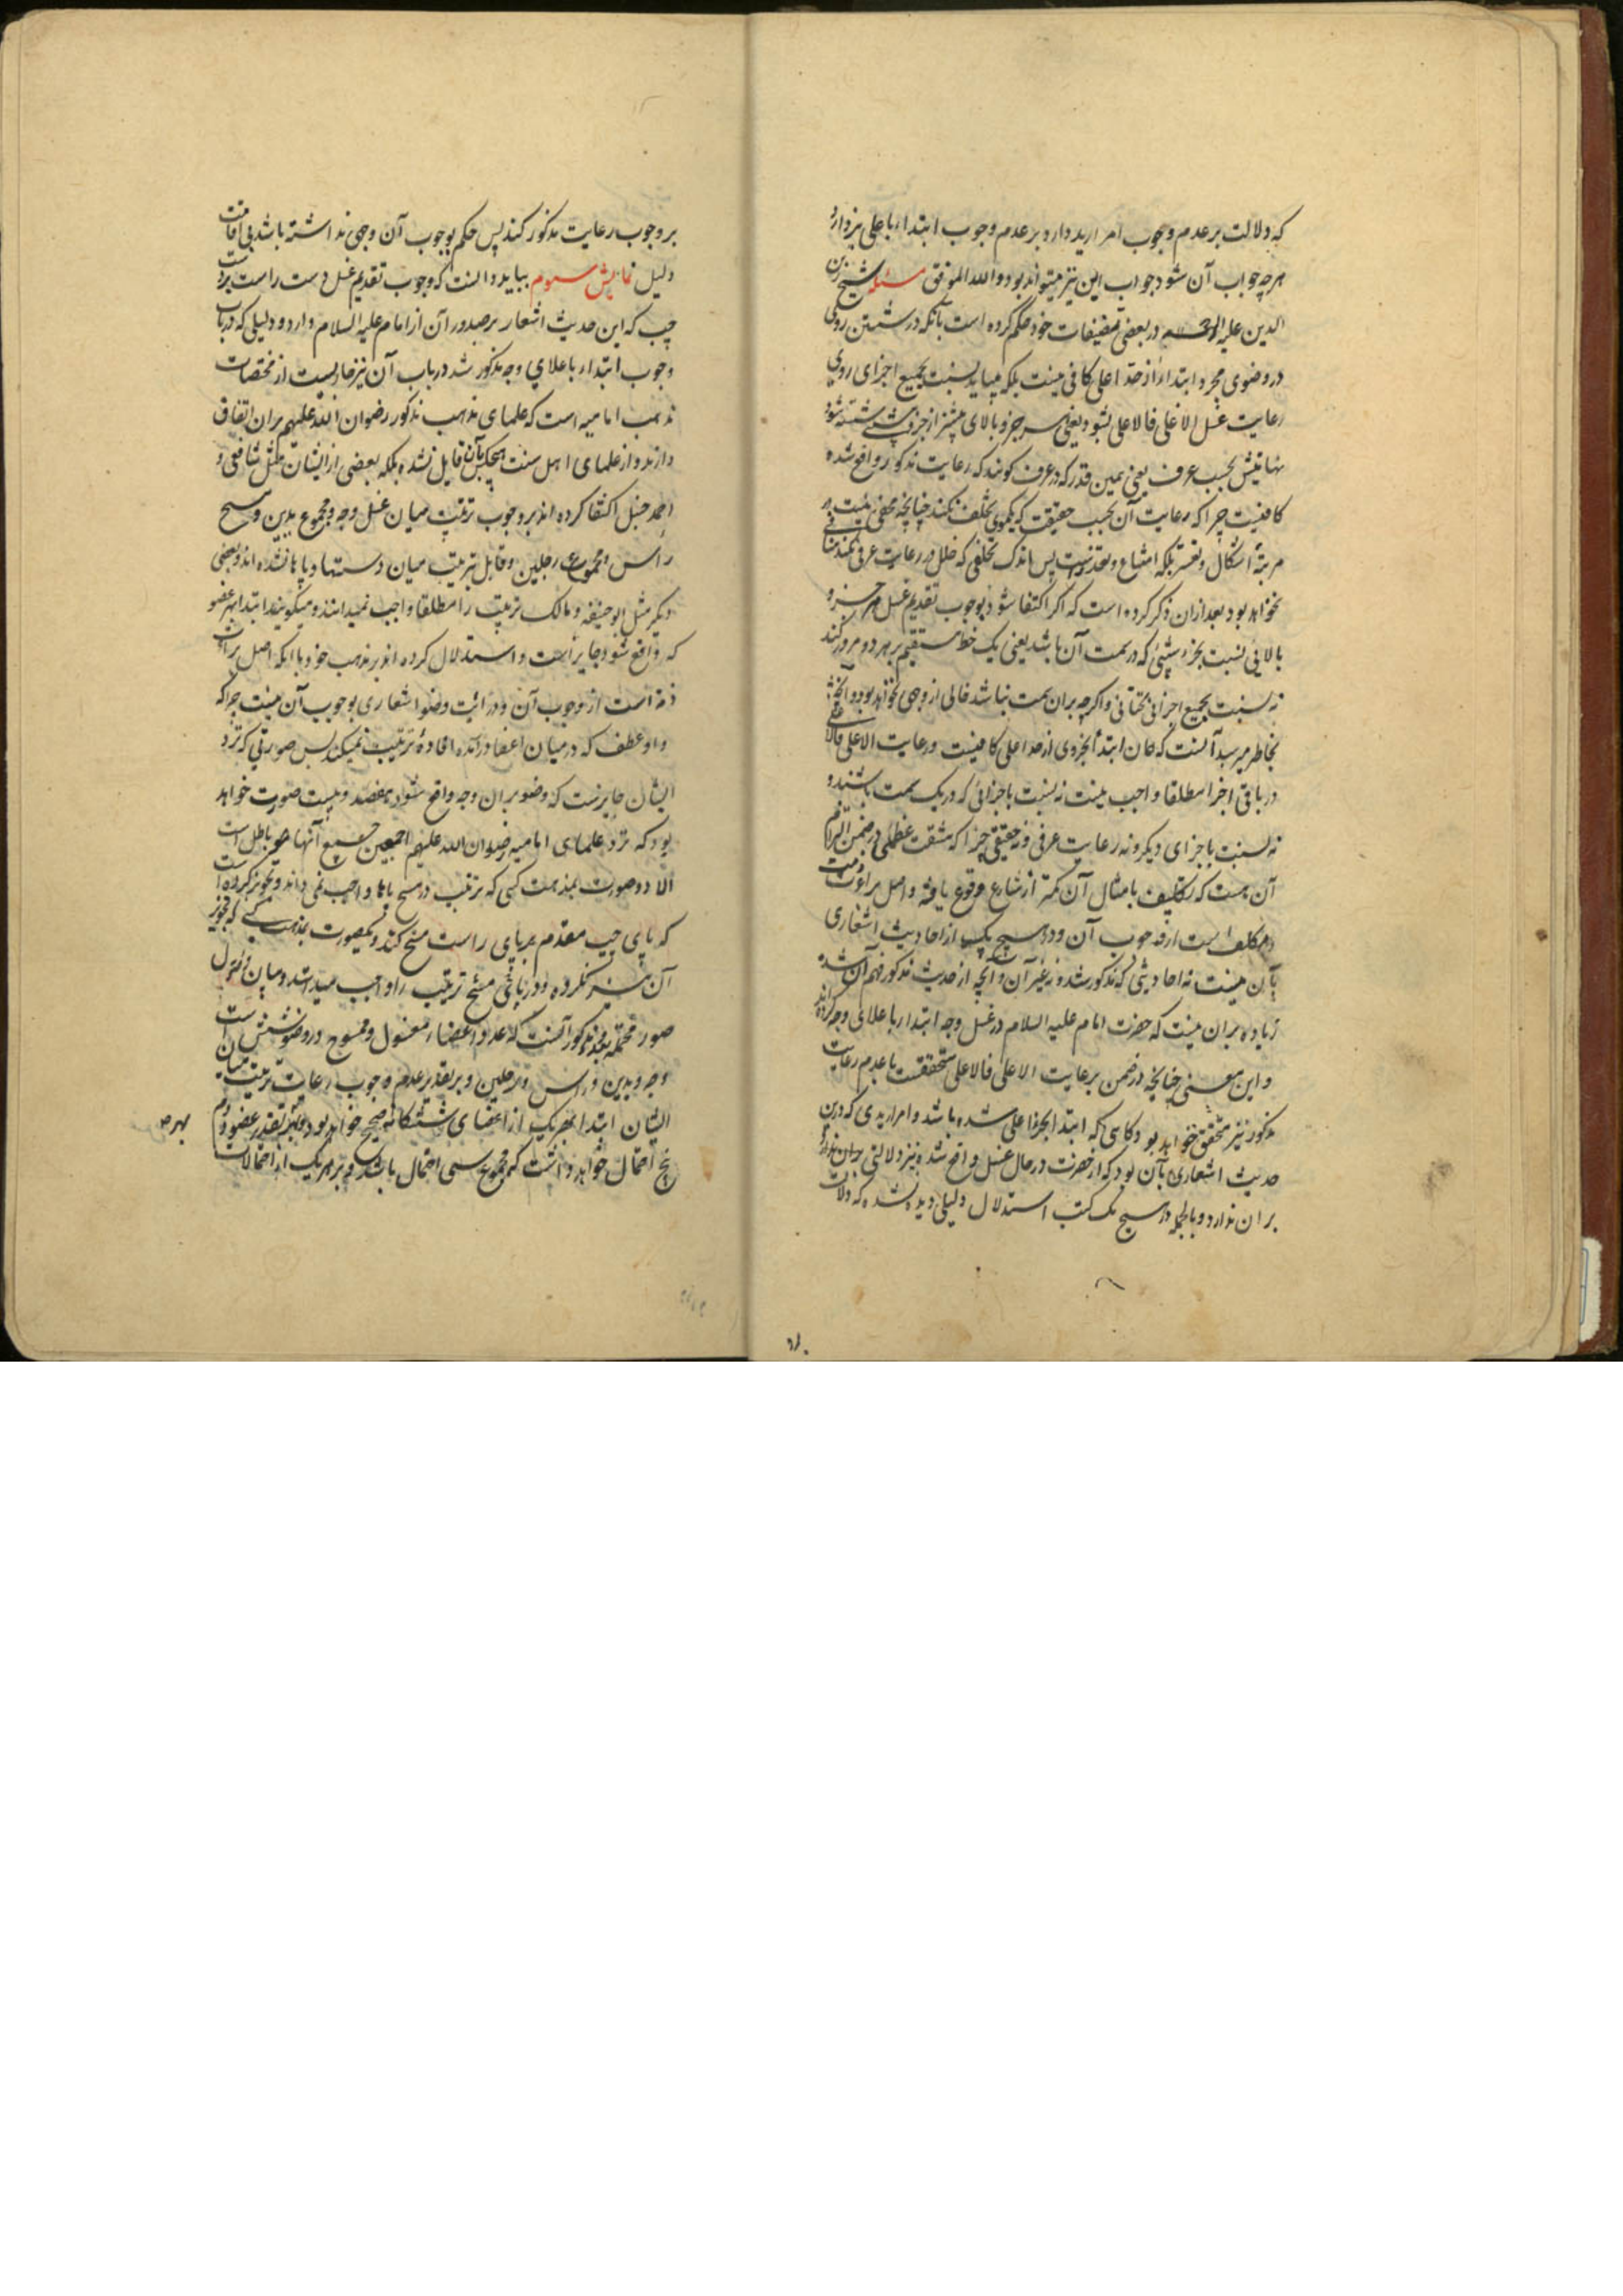 که دلالت بر عدم وجوب امر ارید دارد بر عدم وجوب ابتدار باعلی نیز دارد
هرچه جواب آن شود جواب این نیز میتواند بود والله الموفق مسئله شیخ زین
الدین علیه الرحمه در بعضی تصنیفات خود حکم کرده است بآنکه در شستن روی
در وضوی مجرد ابتدا از حد اعلی کافی نیست بلکه میباید نسبت بجمیع اجزای روی
رعایت غسل الاعلی فالاعلی بشود یعنی هر جزو بالای پیشتر از جزو شسته شود
نهایتش بحسب عرف یعنی همین قدر که در عرف کویند که رعایت مذکور واقع شده
کافیست چرا که رعایت آن بحسب حقیقت که یکموی تخلف نکند چنانچه مخفی نیست در
مرتبهٔ اشکال و تعسر بلکه امتناع و تعذر است پس اندک تخلفی که خلل در رعایت عرفی نکند منافی
نخواهد بود بعد از ان ذکر کرده است که اکر اکتفا شود بوجوب تقدیم غسل هر جزو
بالایی نسبت بجزء که در سمت آن باشد یعنی یک خط مستقیم بر هر دو مرور کند
نه نسبت بجمیع اجزائی تحتانی و اکرچه بران سمت نباشد خالی از وجهی نخواهد بود و آنچه
بخاطر میرسد آنست که همان ابتدا بجزوی از حد اعلی کافیست و رعایت الاعلی فالاعلی
در باقی اجزا مطلقا واجب نیست نه نسبت باجزائی که در یک سمت باشند و
نه نسبت باجزای دیکر و نه رعایت عرفی و نه حقیقی چرا که مشقت عظمی در ضمن التزام
آن هست که تکلیف بامثال آن کمتر از شارع وقوع یافته و اصل براءت ذمت
مکلف است از وجوب آن و در هیچ یک از احادیث اشعاری
بآن نیست نه احادیثی که مذکور شد و نه غیر آن و آنچه از حدیث مذکور فهم آن شد
زیاده بران نیست که حضرت امام علیه السلام در غسل وجه ابتدار باعلای وجه کرده اند
و این معنی چنانچه در ضمن رعایت الاعلی فالاعلی متحققست با عدم رعایت
مذکور نیز متحقق خواهد بود کاهی که ابتدا بجزء اعلی شده باشد و امراریدی که درین
حدیث اشعاری بآن بود که از حضرت در حال غسل واقع شد نیز دلالتی بران ندارد
بران ندارد و بالجمله در هیچ یک کتب استدلال دلیلی دیده نشده که دلالت
بر وجوب رعایت مذکور کند پس حکم بوجوب آن وجهی نداشته باشد بی اقامت
دلیل نمایش سیوم بباید دانست که وجوب تقدیم غسل دست راست بر دست
چپ که این حدیث اشعار بر صدور آن از امام علیه السلام دارد و دلیلی که در باب
وجوب ابتدار باعلای وجه مذکور شد در باب آن نیز جاریست از مختصات
مذهب امامیه است که علمای مذهب مذکور رضوان الله علیهم بران اتفاق
دارند و از علمای اهل سنت هیچکس بآن قایل نشده بلکه بعضی از ایشان مثل شافعی و
احمد حنبل اکتفا کرده اند بر وجوب ترتیب میان غسل وجه و مجموع یدین و مسح
راس و مجموع رجلین و قابل بترتیب میان دستها و پاها نشده اند و بعضی
دیکر مثل ابو حنیفه و مالک ترتیب را مطلقا واجب نمیدانند و میکویند ابتدا بهر عضو
که واقع شود جایز است و استدلال کرده اند بر مذهب خود بانکه اصل برائت
ذمه است از وجوب آن و در آیت وضو اشعاری بوجوب آن نیست چراکه
واو عطف که در میان اعضا در آمده افادهٔ ترتیب نمیکند پس صورتی که نزد
ایشان جایزست که وضو بران وجه واقع شود هفصد و بیست صورت خواهد
بود که نزد علمای امامیه رضوان الله علیهم اجمعین جمیع آنها باطل است
الا دو صورت بمذهب کسی که ترتیب در مسح پاها واجب نمی داند و تجویز کرده است
که پای چپ مقدم بر پای راست مسح کند و یکصورت بمذهب کسی که تجویز
آن نیز نکرده و در پاهی مسح ترتیب را واجب میداند و بیان وصول
صور محتمله بعدد مذکور آنست که عدد اعضاء مغسول و ممسوح در وضو شش است
وجه و یدین و راس و رجلین و بر تقدیر عدم وجوب رعایت ترتیب میان
ایشان ابتدا بهر یک از اعضای ششکانه صحیح خواهد بود و بهر تقدیر عضو دوم
پنج احتمال خواهد داشت که مجموع سی احتمال باشد و بر هر یک از احتمالات